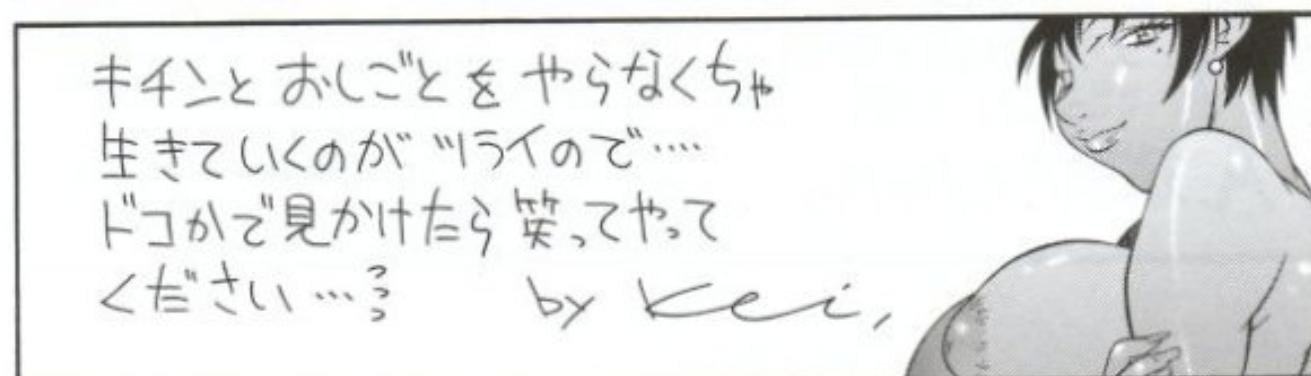 キチンとおしごとをやらなくちゃ
生きていくのがツライので‥‥
ドコかで見かけたら笑ってやって
ください…っっっ by Kei,